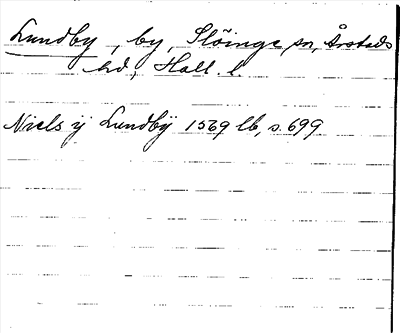 Lundby, by, Slöinge sn, Årstads
hd, Hall. l.
Niels ÿ Lundbÿ 1569 lb, s. 699